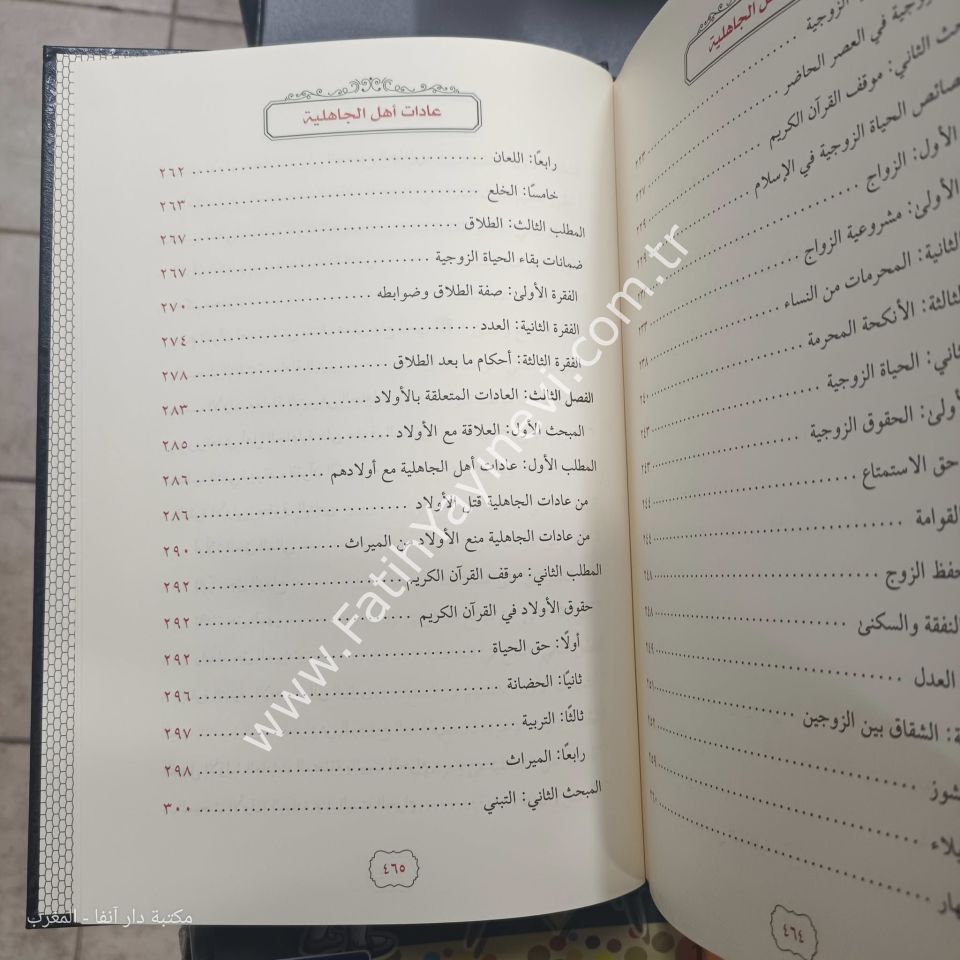 عادات أهل الجاهلية
رابعًا: اللعان ٢٦٢
خامسًا: الخلع ٢٦٣
المطلب الثالث: الطلاق ٢٦٧
ضمانات بقاء الحياة الزوجية ٢٦٧
الفقرة الأولىٰ: صفة الطلاق وضوابطه ٢٧٠
الفقرة الثانية: العدد ٢٧٤
الفقرة الثالثة: أحكام ما بعد الطلاق ٢٧٨
الفصل الثالث: العادات المتعلقة بالأولاد ٢٨٣
المبحث الأول: العلاقة مع الأولاد ٢٨٥
المطلب الأول: عادات أهل الجاهلية مع أولادهم ٢٨٦
من عادات الجاهلية قتل الأولاد ٢٨٦
من عادات الجاهلية منع الأولاد من الميراث ٢٩٠
المطلب الثاني: موقف القرآن الكريم ٢٩٢
حقوق الأولاد في القرآن الكريم ٢٩٢
أولًا: حق الحياة ٢٩٢
ثانيًا: الحضانة ٢٩٦
ثالثًا: التربية ٢٩٧
رابعًا: الميراث ٢٩٨
المبحث الثاني: التبني ٣٠٠
٤٦٥
الجاهلية
الزوجية
في العصر الحاضر ٢٢٣
الثاني: موقف القرآن الكريم ٢٢٧
الحياة الزوجية في الإسلام
الأول: الزواج
الأولىٰ: مشروعية الزواج
الثانية: المحرمات من النساء
الثالثة: الأنكحة المحرمة ٢٣٨
الحياة الزوجية
الحقوق الزوجية ٢٤٣
حق الاستمتاع ٢٤٣
القوامة ٢٤٤
حفظ الزوج
النفقة والسكنىٰ ٢٤٨
العدل ٢٤٨
الشقاق بين الزوجين
٤٦٤
www.FatihYayinevi.com.tr
مكتبة دار آنفا - المغرب